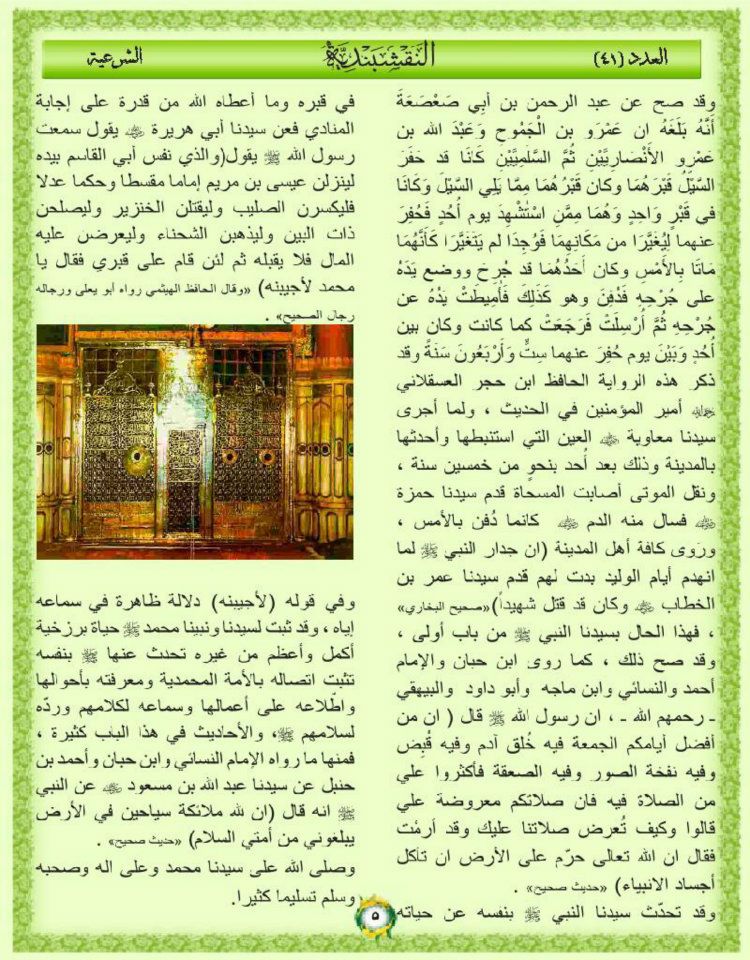 العدد (٤١)
النقشبندية
الشرعية
وقد صح عن عبد الرحمن بن أبي صَعْصَعَةَ
أَنَّهُ بَلَغَهُ ان عَمْرَو بن الْجَمُوحِ وَعَبْدَ الله بن
عَمْرو الأَنْصَارِيَّيْنِ ثُمَّ السَّلَمِيَّيْنِ كَانَا قد حَفَرَ
السَّيْلُ قَبْرَهُمَا وكان قَبْرُهُمَا مِمَّا يَلِي السَّيْلَ وَكَانَا
في قَبْرٍ وَاحِدٍ وَهُمَا مِمَّنِ اسْتُشْهِدَ يوم أُحُدٍ فَحُفِرَ
عنهما لِيُغَيَّرَا من مَكَانِهِمَا فَوُجِدَا لم يَتَغَيَّرَا كَأَنَّهُمَا
مَاتَا بِالأَمْسِ وكان أَحَدُهُمَا قد جُرِحَ ووضع يَدَهُ
على جُرْحِهِ فَدُفِنَ وهو كَذَلِكَ فَأُمِيطَتْ يَدُهُ عن
جُرْحِهِ ثُمَّ أُرْسِلَتْ فَرَجَعَتْ كما كانت وكان بين
أُحُدٍ وَبَيْنَ يوم حُفِرَ عنهما سِتٌّ وَأَرْبَعُونَ سَنَةً وقد
ذكر هذه الرواية الحافظ ابن حجر العسقلاني
رحمه الله أمير المؤمنين في الحديث ، ولما أجرى
سيدنا معاوية رضي الله عنه العين التي استنبطها وأحدثها
بالمدينة وذلك بعد أُحد بنحوٍ من خمسين سنة ،
ونقل الموتى أصابت المسحاة قدم سيدنا حمزة
رضي الله عنه فسال منه الدم رضي الله عنه كانما دُفن بالأمس ،
وروى كافة أهل المدينة (ان جدار النبي ﷺ لما
انهدم أيام الوليد بدت لهم قدم سيدنا عمر بن
الخطاب رضي الله عنه وكان قد قتل شهيداً)«صحيح البخاري»
، فهذا الحال بسيدنا النبي ﷺ من باب أولى ،
وقد صح ذلك ، كما روى ابن حبان والإمام
أحمد والنسائي وابن ماجه وأبو داود والبيهقي
ـ رحمهم الله ـ ، ان رسول الله ﷺ قال ( ان من
أفضل أيامكم الجمعة فيه خُلق آدم وفيه قُبِضَ
وفيه نفخة الصور وفيه الصعقة فأكثروا علي
من الصلاة فيه فان صلاتكم معروضة علي
قالوا وكيف تُعرض صلاتنا عليك وقد أرمْت
فقال ان الله تعالى حرّم على الأرض ان تأكل
أجساد الانبياء) «حديث صحيح» .
وقد تحدّث سيدنا النبي ﷺ بنفسه عن حياته
في قبره وما أعطاه الله من قدرة على إجابة
المنادي فعن سيدنا أبي هريرة رضي الله عنه يقول سمعت
رسول الله ﷺ يقول(والذي نفس أبي القاسم بيده
لينزلن عيسى بن مريم إماما مقسطا وحكما عدلا
فليكسرن الصليب وليقتلن الخنزير وليصلحن
ذات البين وليذهبن الشحناء وليعرضن عليه
المال فلا يقبله ثم لئن قام على قبري فقال يا
محمد لأجيبنه) «وقال الحافظ الهيثمي رواه ابو يعلى ورجاله
رجال الصحيح» .
وفي قوله (لأجيبنه) دلالة ظاهرة في سماعه
إياه ، وقد ثبت لسيدنا ونبينا محمد ﷺ حياة برزخية
أكمل وأعظم من غيره تحدث عنها ﷺ بنفسه
تثبت اتصاله بالأمة المحمدية ومعرفته بأحوالها
واطّلاعه على أعمالها وسماعه لكلامهم وردّه
لسلامهم ﷺ، والأحاديث في هذا الباب كثيرة ،
فمنها ما رواه الإمام النسائي وابن حبان وأحمد بن
حنبل عن سيدنا عبد الله بن مسعود رضي الله عنه عن النبي
ﷺ انه قال (ان لله ملائكة سياحين في الأرض
يبلغوني من أمتي السلام) «حديث صحيح» .
وصلى الله على سيدنا محمد وعلى اله وصحبه
وسلم تسليما كثيرا.
٥